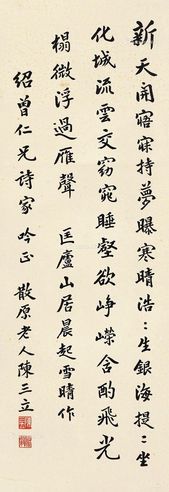 新天開寤寐持夢曝寒晴浩:生銀海提:坐
化城流雲交窈窕睡壑欲崢嶸含酌飛光
榻微浮過雁聲 匡廬山居晨起雪晴作
紹曾仁兄詩家 吟正 散原老人陳三立